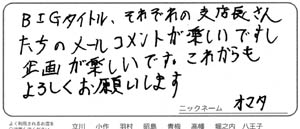 BIGタイトル、それぞれの支店長さん
たちのメールコメントが楽しいですし
企画が楽しいです。これからも
よろしくお願いします
ニックネーム オマタ
立川 小作 羽村 昭島 青梅 高幡 堀之内 八王子